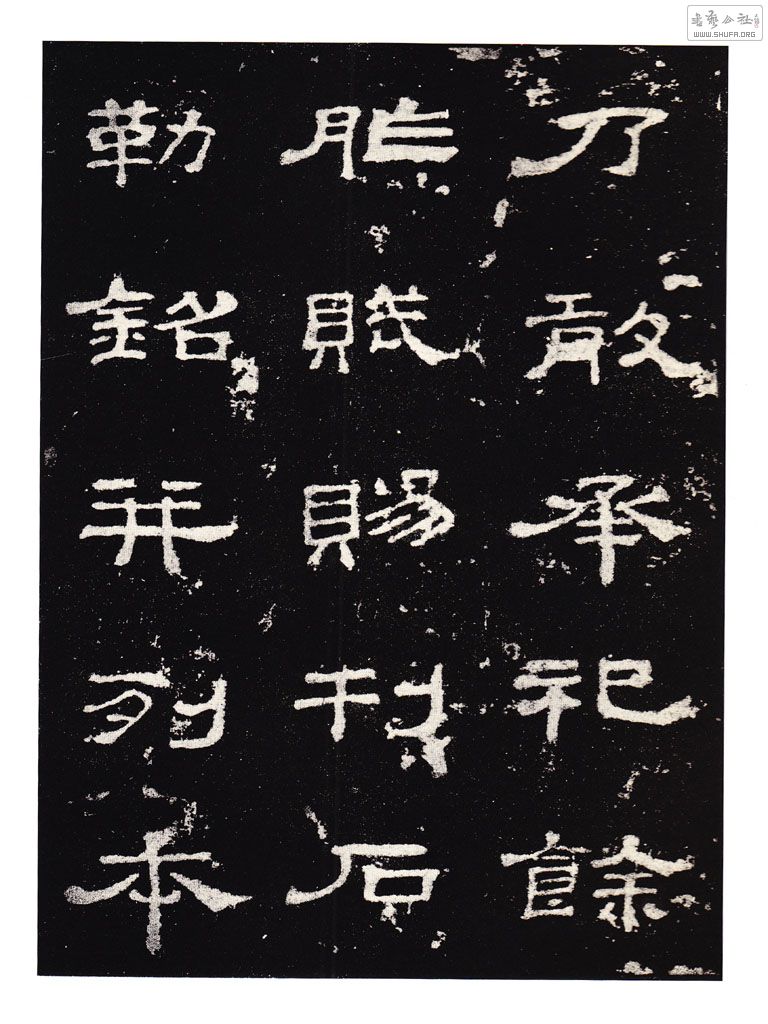 書藝公社
WWW.SHUFA.ORG
乃敢承祀餘
胙賦賜刊石
勒銘并列本